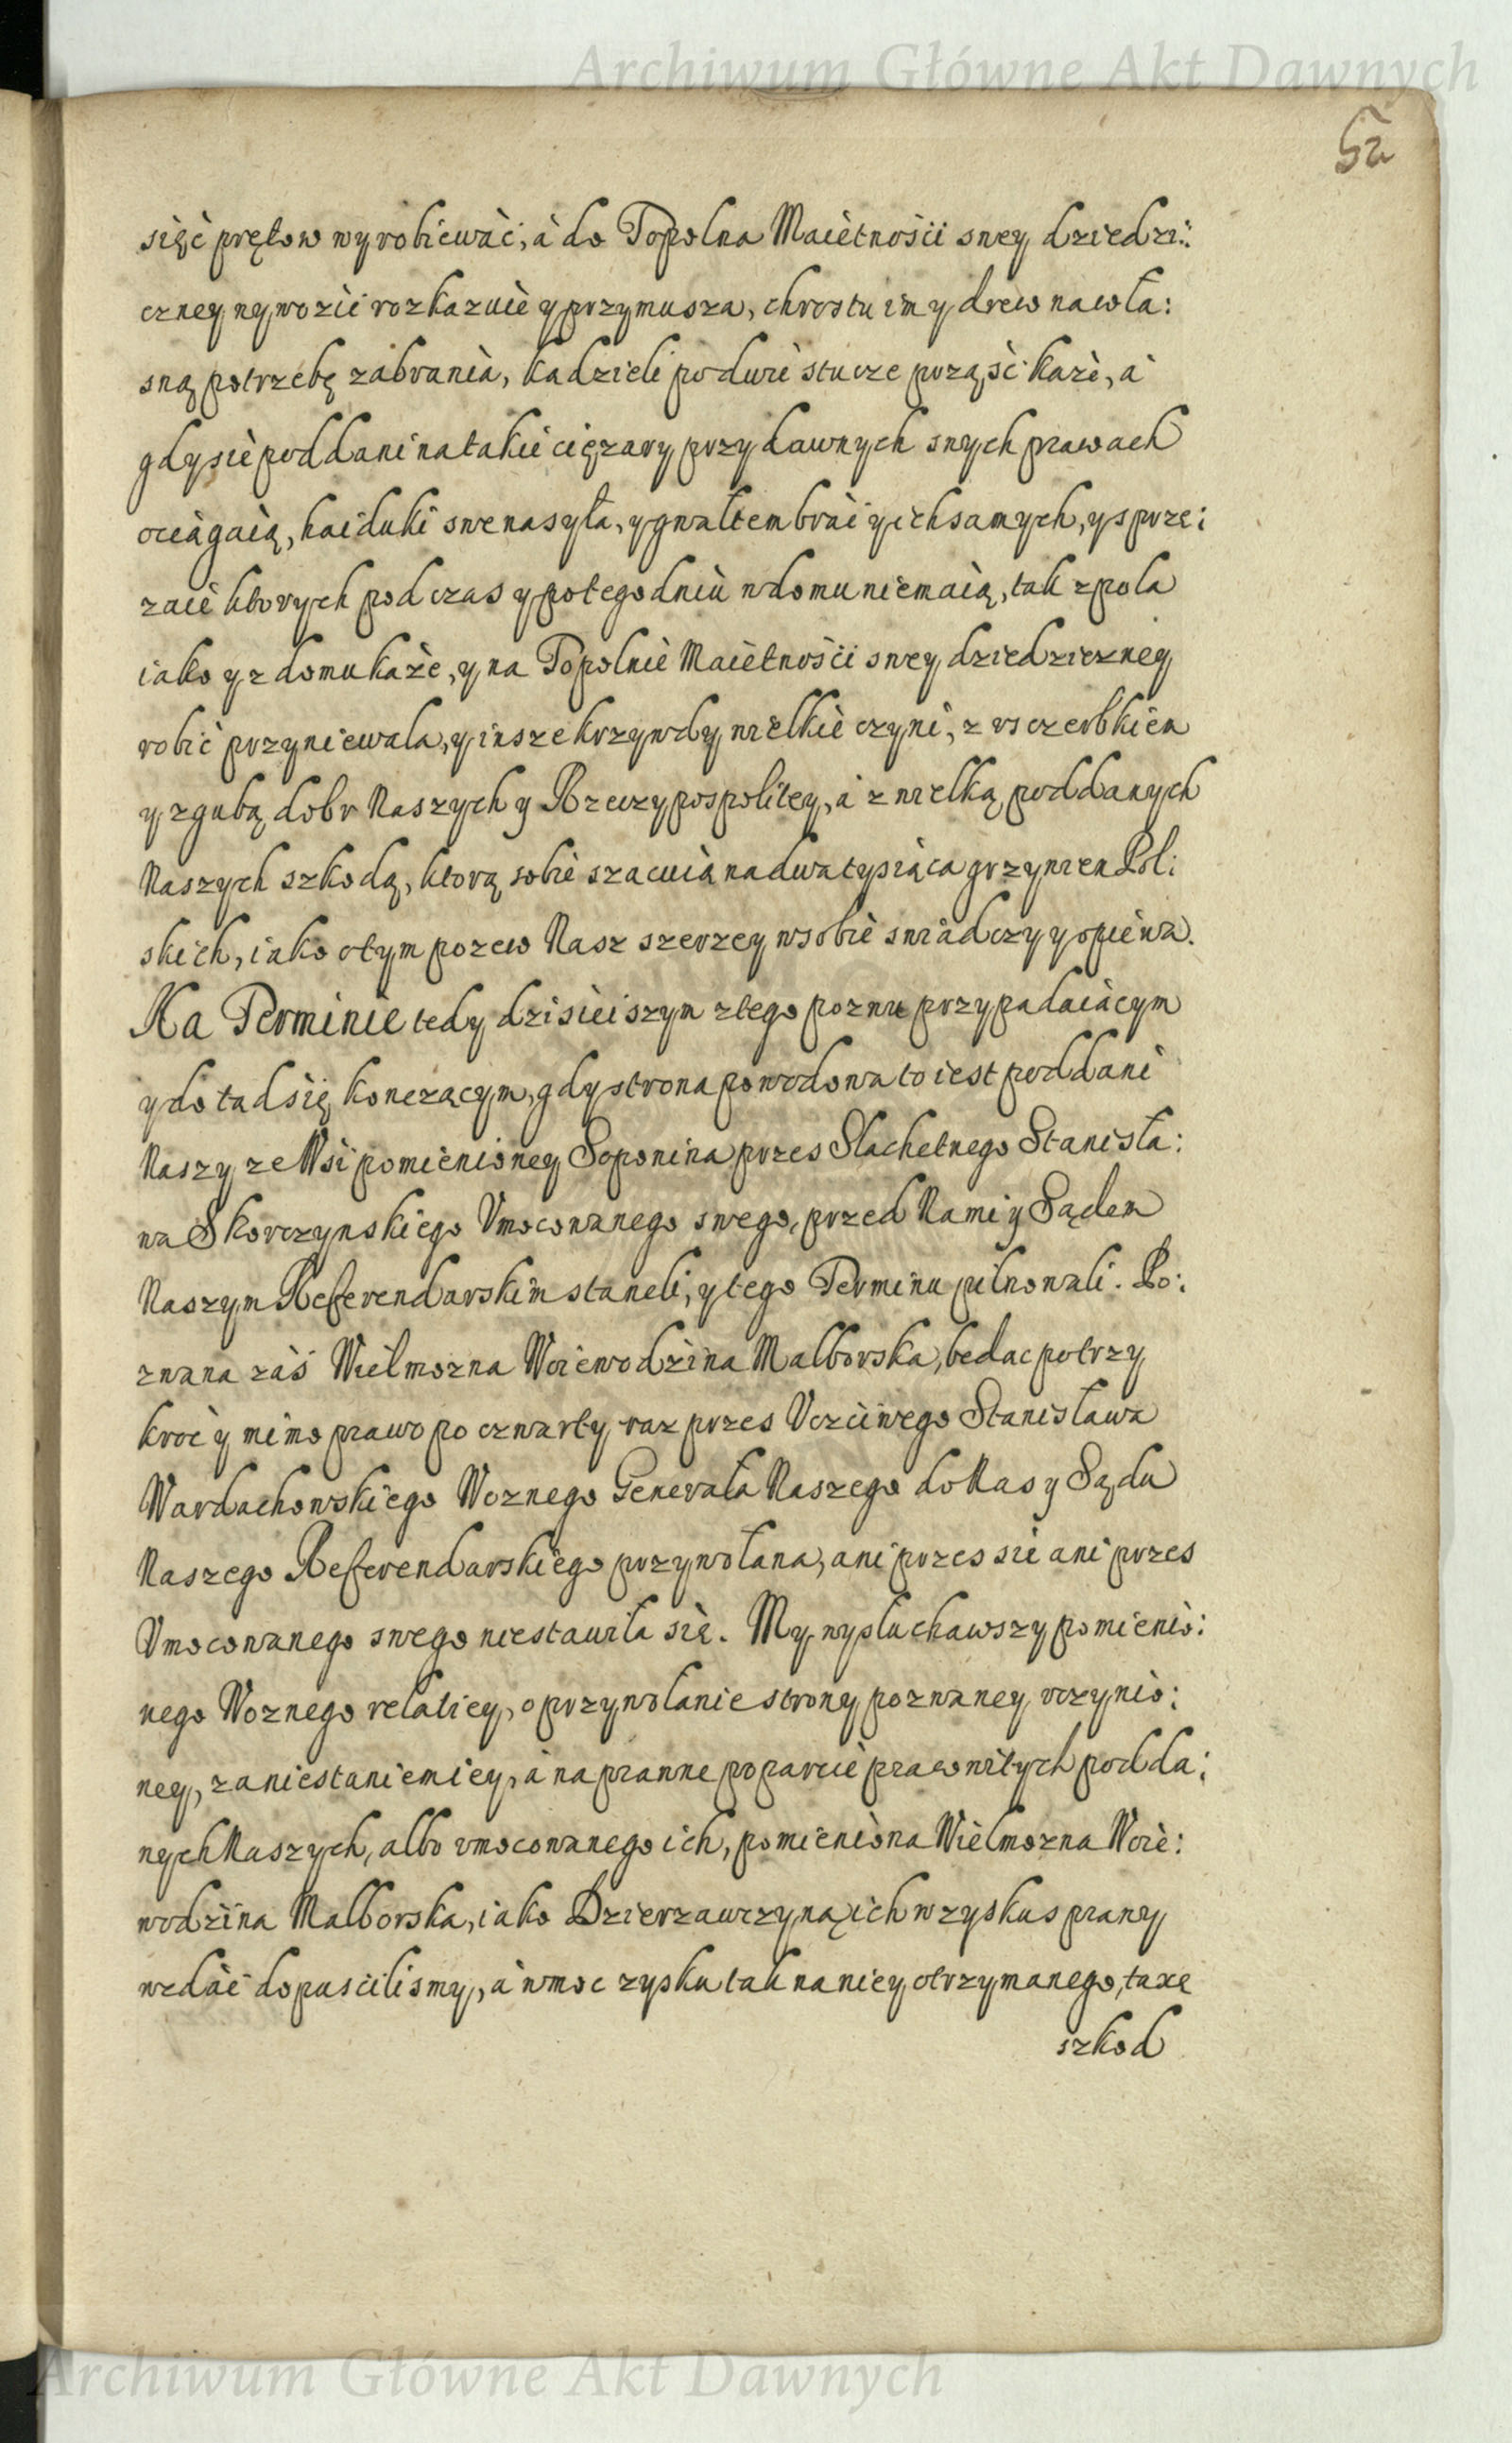 Archiwum Główne Akt Dawnych
52
sięć prętow wyrobiewàć, à do Topolna Maiètnośći swey dziedzi:
czney wywozić rozkazuiè y przymusza, chrostu im y drew na wła:
sną potrzebę zabrania, kadzieli po dwie sztucze prząść każè, à
gdy się poddani na takie ciężary przy dawnych swych prawach
ociàgaią, haiduki swe nasyła, y gwałtem brać y ich samych, y sprzę:
zaie ktorych podczas y po tego dniù w domu nie maią, tak z pola
iako y z domu każe, y na Topolniè Maiètnośći swey dziedziczney
robić przyniewala, y insze krzywdy wielkiè czyni, z vsczerbkiem
y zgubą dobr Naszych y Rzeczypospolitey, à z wielką poddanych
Naszych szkodą, ktorą sobiè szacuią na dwa tysiąca grzywien Pol:
skich, iako o tym pozew Nasz szerzey w sobiè swiadczy y opiewa.
Na Terminie tedy dzisieiszym z tego pozwu przypadaiàcym
y do tąd się kończącym, gdy strona powodowa to iest poddani
Naszy ze Wsi pomienioney Soponina przes Slachetnego Stanisła:
wa Skorczynskiego Vmocowanego swego, przed Nami y Sądem
Naszym Referendarskim staneli, y tego Terminu pilnowali. Po:
zwana záś Wielmozna Woiewodzina Malborska, bedac po trzy
kroć y mimo prawo po czwarty raz przes Vczciwego Stanisława
Wardachowskiego Woznego Generała Naszego do Nas y Sądu
Naszego Referendarskiego przywołana, ani przes się ani przes
Vmocowanego swego nie stawiła się. My wysłuchawszy pomienio:
nego Woznego relatiey, o przywołanie strony pozwaney vczynio:
ney, za niestaniem iey, à na prawne poparcie prawnitych podda:
nych Naszych, albo vmocowanego ich, pomieniona Wielmozna Woie:
wodzina Malborska, iako Dzierzawczyną ich w zysku sprawy
wzdàć dopuścilismy, à w moc zysku tak na niey otrzymanego, taxę
szkod
Archiwum Główne Akt Dawnych